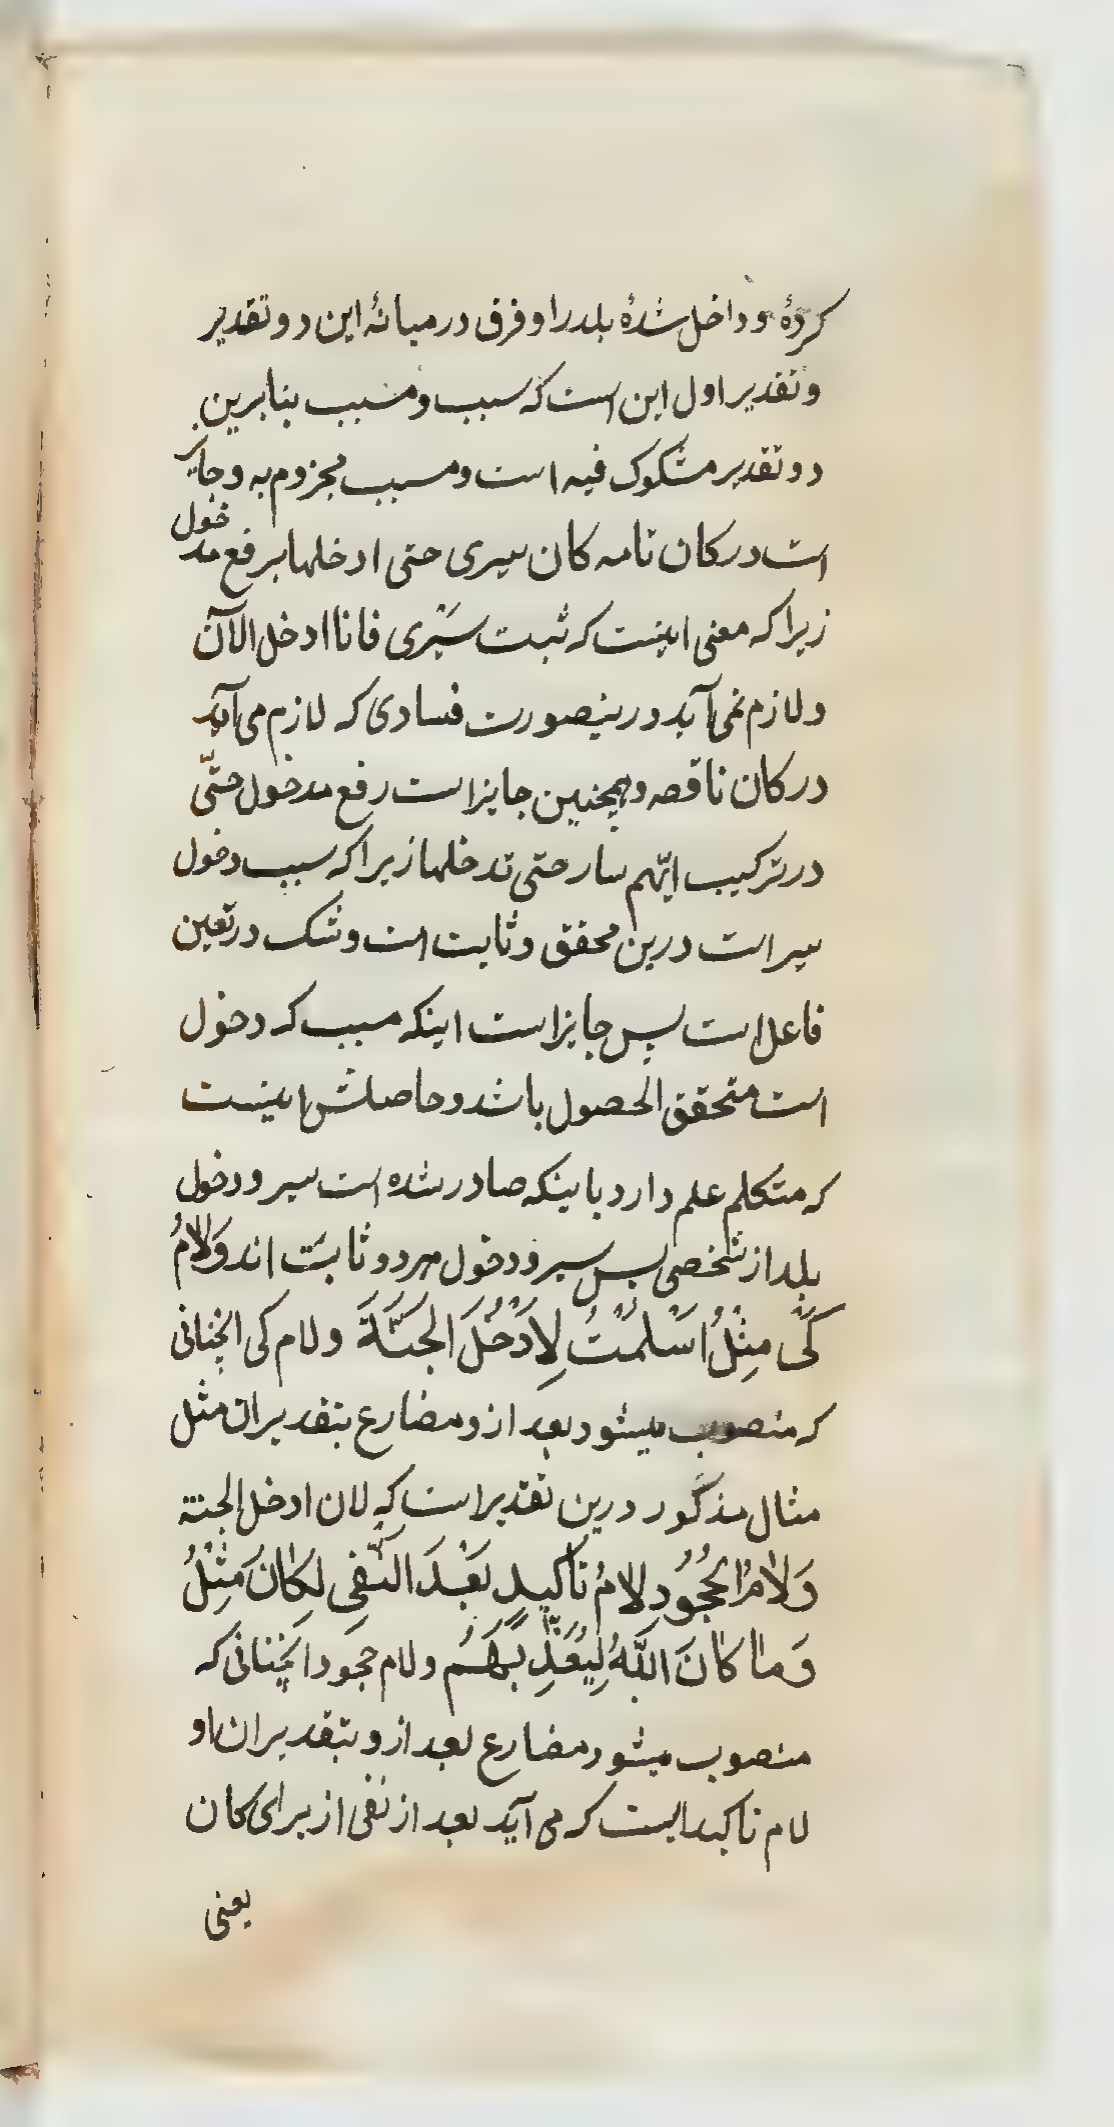 کردهٔ و داخل شدهٔ بلد را و فرق در میانهٔ این دو تقدیر
و تقدیر اول این است که سبب و مسبب بنابرین
دو تقدیر مشکوک فیه است و مسبب مجزوم به و جایز
است در کان تامه کان سیری حتی ادخلها برفع مدخول
زیرا که معنی اینست که ثبت سَیْری فانا ادخل الآن
و لازم نمی‌آید درینصورت فسادی که لازم می‌آید
در کان ناقصه و همچنین جایز است رفع مدخول حتّی
در ترکیب ایّهم سار حتی تدخلها زیرا که سبب دخول
سیر است درین محقق و ثابت است و شک در تعین
فاعل است پس جایز است اینکه مسبب که دخول
است متحقق الحصول باشد و حاصلش اینست
که متکلم علم دارد باینکه صادر شده است سیر و دخول
بلد از شخصی پس سیر و دخول هر دو ثابت اند وَلامُ
کَیْ مِثْلُ اَسْلَمْتُ لِاَدْخُلَ الْجَنَّةَ و لام کی انچنانی
که منصوب میشود بعد ازو مضارع بتقدیر ان مثل
مثال مذکور درین تقدیر است که لان ادخل الجنة
وَلامُ الْجُحُودِ لامُ تَاکیدٍ بَعْدَ النَّفیِ لِکانَ مِثْلُ
وَما کانَ اللّٰهُ لِیُعَذِّبَهُمْ و لام جحود انچنانی که
منصوب میشود مضارع بعد ازو بتقدیر ان او
لام تاکیدایست که می‌آید بعد از نفی از برای کان
یعنی